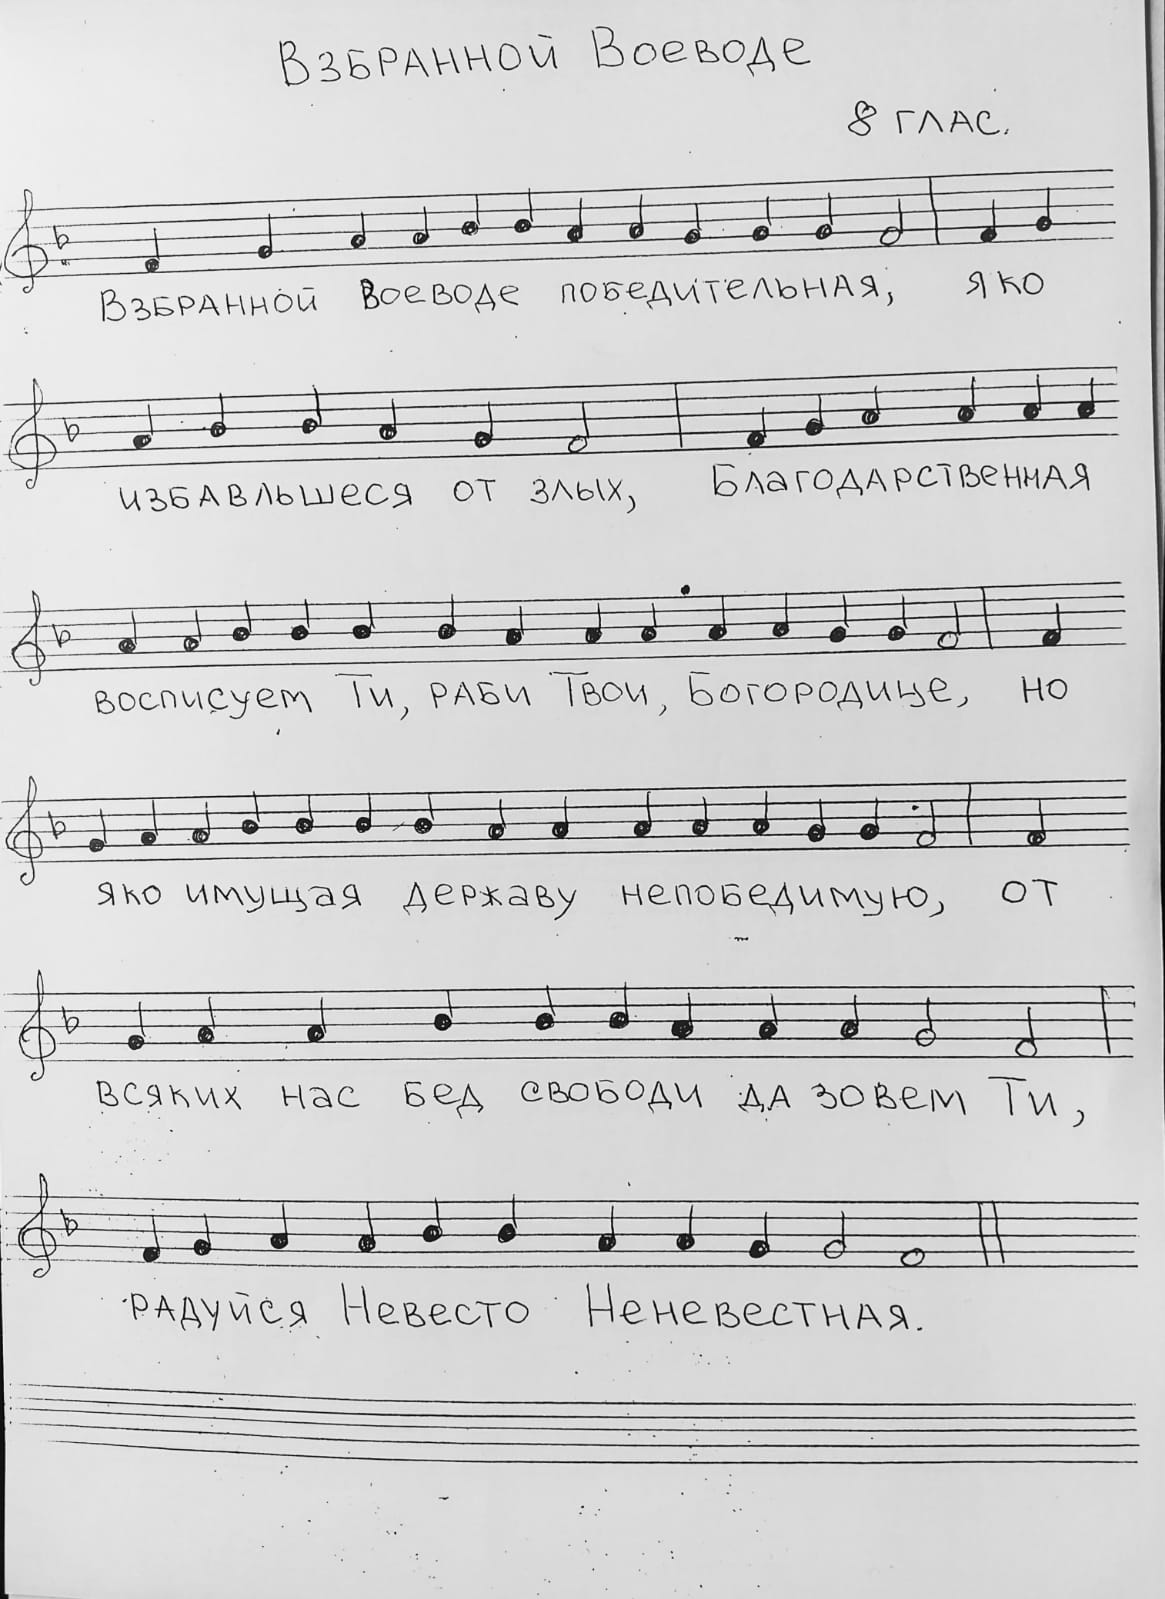 Взбранной Воеводе
8 глас.
Взбранной Воеводе победительная, яко
избавльшеся от злых, Благодарственная
восписуем Ти, раби Твои, Богородице, но
яко имущая державу непобедимую, от
всяких нас бед свободи да зовем Ти,
радуйся Невесто Неневестная.